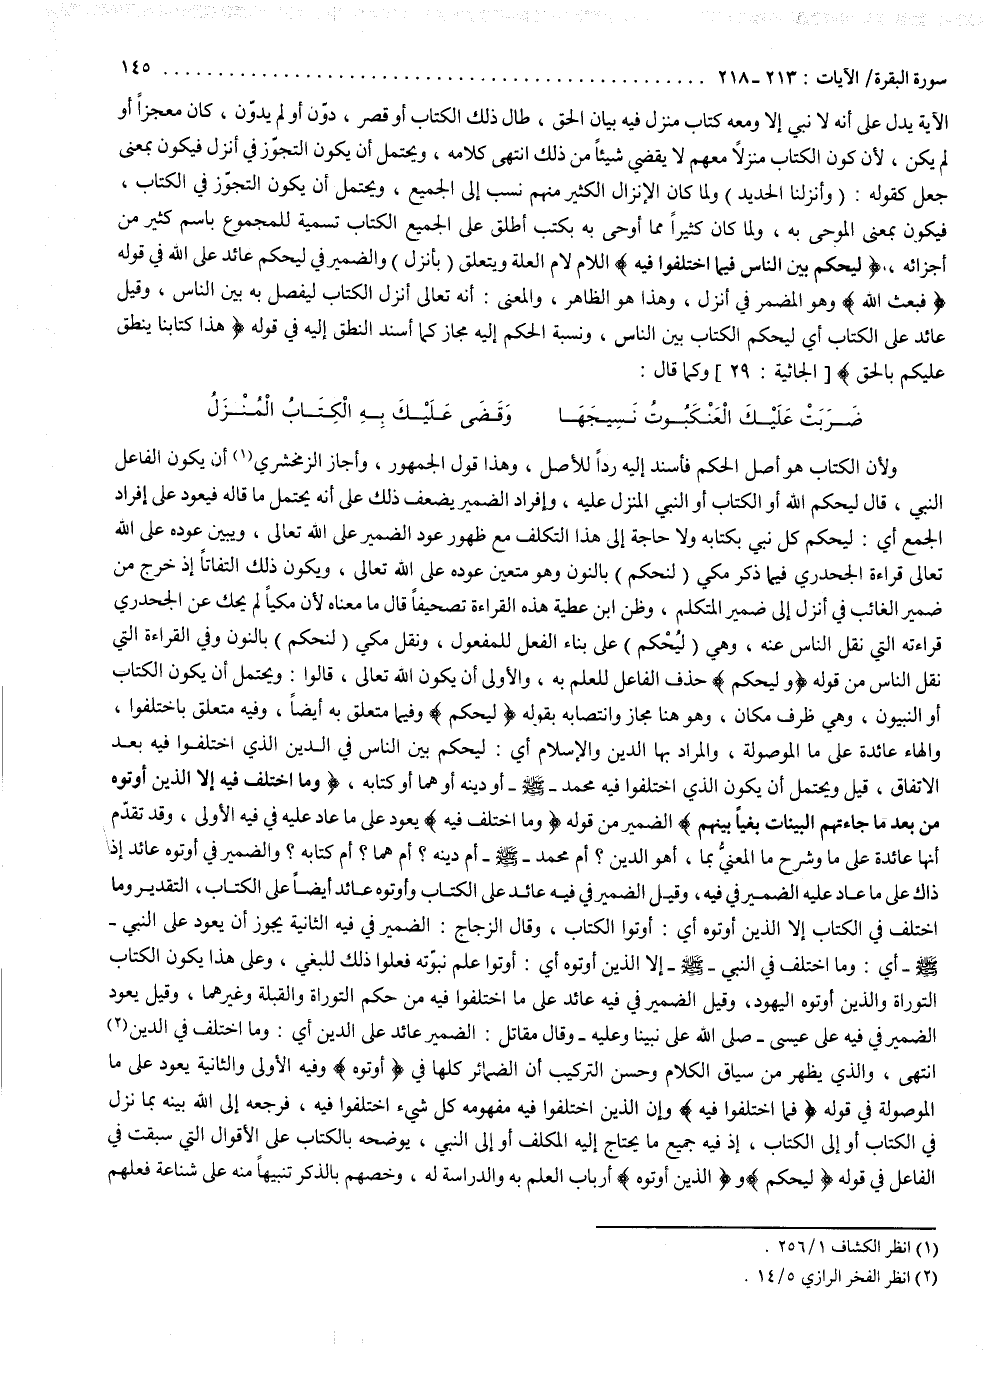 سورة البقرة/ الآيات : ٢١٣ ـ ٢١٨ ........................................ ١٤٥
الآية يدل على أنه لا نبي إلا ومعه كتاب منزل فيه بيان الحق ، طال ذلك الكتاب أو قصر ، دوّن أو لم يدوّن ، كان معجزاً أو
لم يكن ، لأن كون الكتاب منزلاً معهم لا يقضي شيئاً من ذلك انتهى كلامه ، ويحتمل أن يكون التجوّز في أنزل فيكون بمعنى
جعل كقوله : ( وأنزلنا الحديد ) ولما كان الإنزال الكثير منهم نسب إلى الجميع ، ويحتمل أن يكون التجوّز في الكتاب ،
فيكون بمعنى الموحى به ، ولما كان كثيراً مما أوحى به بكتب أطلق على الجميع الكتاب تسمية للمجموع باسم كثير من
أجزائه ،. ﴿ ليحكم بين الناس فيما اختلفوا فيه ﴾ اللام لام العلة ويتعلق ( بأنزل ) والضمير في ليحكم عائد على الله في قوله
﴿ فبعث الله ﴾ وهو المضمر في أنزل ، وهذا هو الظاهر ، والمعنى : أنه تعالى أنزل الكتاب ليفصل به بين الناس ، وقيل
عائد على الكتاب أي ليحكم الكتاب بين الناس ، ونسبة الحكم إليه مجاز كما أسند النطق إليه في قوله ﴿ هذا كتابنا ينطق
عليكم بالحق ﴾ [ الجاثية : ٢٩ ] وكما قال :
ضَـرَبَتْ عَلَيْـكَ الْعَنْكَبُـوتُ نَسِيـجَهَـا وَقَضَى عَـلَيْـكَ بِـهِ الْكِتَـابُ الْمُنْـزَلُ
ولأن الكتاب هو أصل الحكم فأسند إليه رداً للأصل ، وهذا قول الجمهور ، وأجاز الزمخشري(١) أن يكون الفاعل
النبي ، قال ليحكم الله أو الكتاب أو النبي المنزل عليه ، وإفراد الضمير يضعف ذلك على أنه يحتمل ما قاله فيعود على إفراد
الجمع أي : ليحكم كل نبي بكتابه ولا حاجة إلى هذا التكلف مع ظهور عود الضمير على الله تعالى ، ويبين عوده على الله
تعالى قراءة الجحدري فيما ذكر مكي ( لنحكم ) بالنون وهو متعين عوده على الله تعالى ، ويكون ذلك التفاتاً إذ خرج من
ضمير الغائب في أنزل إلى ضمير المتكلم ، وظن ابن عطية هذه القراءة تصحيفاً قال ما معناه لأن مكياً لم يحك عن الجحدري
قراءته التي نقل الناس عنه ، وهي ( ليُحْكم ) على بناء الفعل للمفعول ، ونقل مكي ( لنحكم ) بالنون وفي القراءة التي
نقل الناس من قوله ﴿و ليحكم ﴾ حذف الفاعل للعلم به ، والأولى أن يكون الله تعالى ، قالوا : ويحتمل أن يكون الكتاب
أو النبيون ، وهي ظرف مكان ، وهو هنا مجاز وانتصابه بقوله ﴿ ليحكم ﴾ وفيما متعلق به أيضاً ، وفيه متعلق باختلفوا ،
والهاء عائدة على ما الموصولة ، والمراد بها الدين والإسلام أي : ليحكم بين الناس في الـدين الذي اختلفـوا فيه بعـد
الاتفاق ، قيل ويحتمل أن يكون الذي اختلفوا فيه محمد ـ ﷺ ـ أو دينه أو هما أو كتابه ، ﴿ وما اختلف فيه إلا الذين أوتوه
من بعد ما جاءتهم البينات بغياً بينهم ﴾ الضمير من قوله ﴿ وما اختلف فيه ﴾ يعود على ما عاد عليه في فيه الأولى ، وقد تقدّم
أنها عائدة على ما وشرح ما المعنيُّ بما ، أهو الدين ؟ أم محمد ـ ﷺ ـ أم دينه ؟ أم هما ؟ أم كتابه ؟ والضمير في أوتوه عائد إذاً
ذاك على ما عـاد عليه الضميـر في فيه، وقيـل الضميـر في فيـه عائـد على الكتـاب وأوتوه عـائد أيضـاً على الكتـاب، التقديـر وما
اختلف في الكتاب إلا الذين أوتوه أي : أوتوا الكتاب ، وقال الزجاج : الضمير في فيه الثانية يجوز أن يعود على النبي ـ
ﷺ ـ أي : وما اختلف في النبي ـ ﷺ ـ إلا الذين أوتوه أي : أوتوا علم نبوّته فعلوا ذلك للبغي ، وعلى هذا يكون الكتاب
التوراة والذين أوتوه اليهود، وقيل الضمير في فيه عائد على ما اختلفوا فيه من حكم التوراة والقبلة وغيرهما ، وقيل يعود
الضمير في فيه على عيسى ـ صلى الله على نبينا وعليه ـ وقال مقاتل : الضمير عائد على الدين أي : وما اختلف في الدين(٢)
انتهى ، والذي يظهر من سياق الكلام وحسن التركيب أن الضمائر كلها في ﴿ أوتوه ﴾ وفيه الأولى والثانية يعود على ما
الموصولة في قوله ﴿ فيما اختلفوا فيه ﴾ وإن الذين اختلفوا فيه مفهومه كل شيء اختلفوا فيه ، فرجعه إلى الله بينه بما نزل
في الكتاب أو إلى الكتاب ، إذ فيه جميع ما يحتاج إليه المكلف أو إلى النبي ، يوضحه بالكتاب على الأقوال التي سبقت في
الفاعل في قوله ﴿ ليحكم ﴾ و ﴿ الذين أوتوه ﴾ أرباب العلم به والدراسة له ، وخصهم بالذكر تنبيهاً منه على شناعة فعلهم
(١) انظر الكشاف ٢٥٦/١ .
(٢) انظر الفخر الرازي ١٤/٥ .